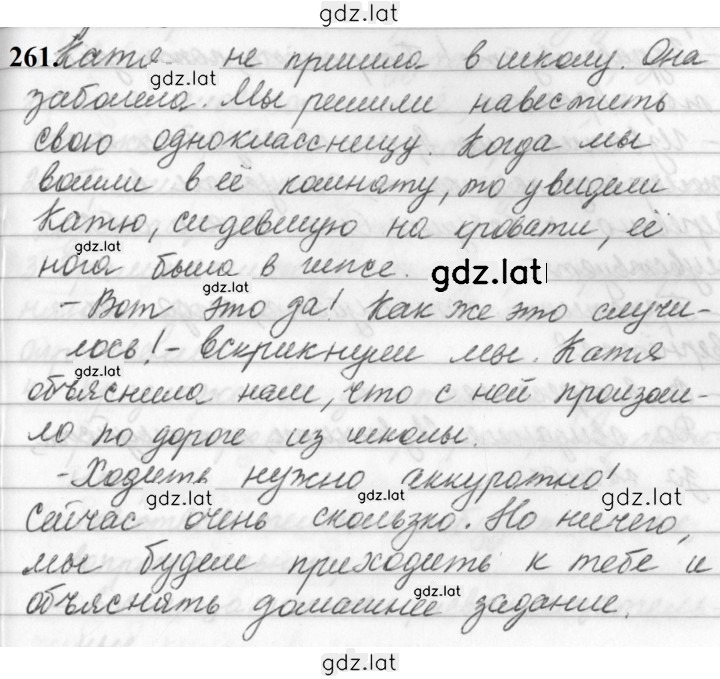 gdz.lat
261. Катя не пришла в школу. Она
gdz.lat
заболела. Мы решили навестить
свою одноклассницу. Когда мы
вошли в её комнату, то увидели
Катю, сидевшую на кровати, её
gdz.lat
нога была в гипсе. gdz.lat
gdz.lat
- Вот это да! Как же это случи-
лось! - вскрикнули мы. Катя
gdz.lat gdz.lat
объяснила нам, что с ней произош-
ло по дороге из школы.
- Ходить нужно аккуратно!
gdz.lat gdz.lat gdz.lat
Сейчас очень скользко. Но ничего,
мы будем приходить к тебе и
gdz.lat
объяснять домашнее задание.
gdz.lat